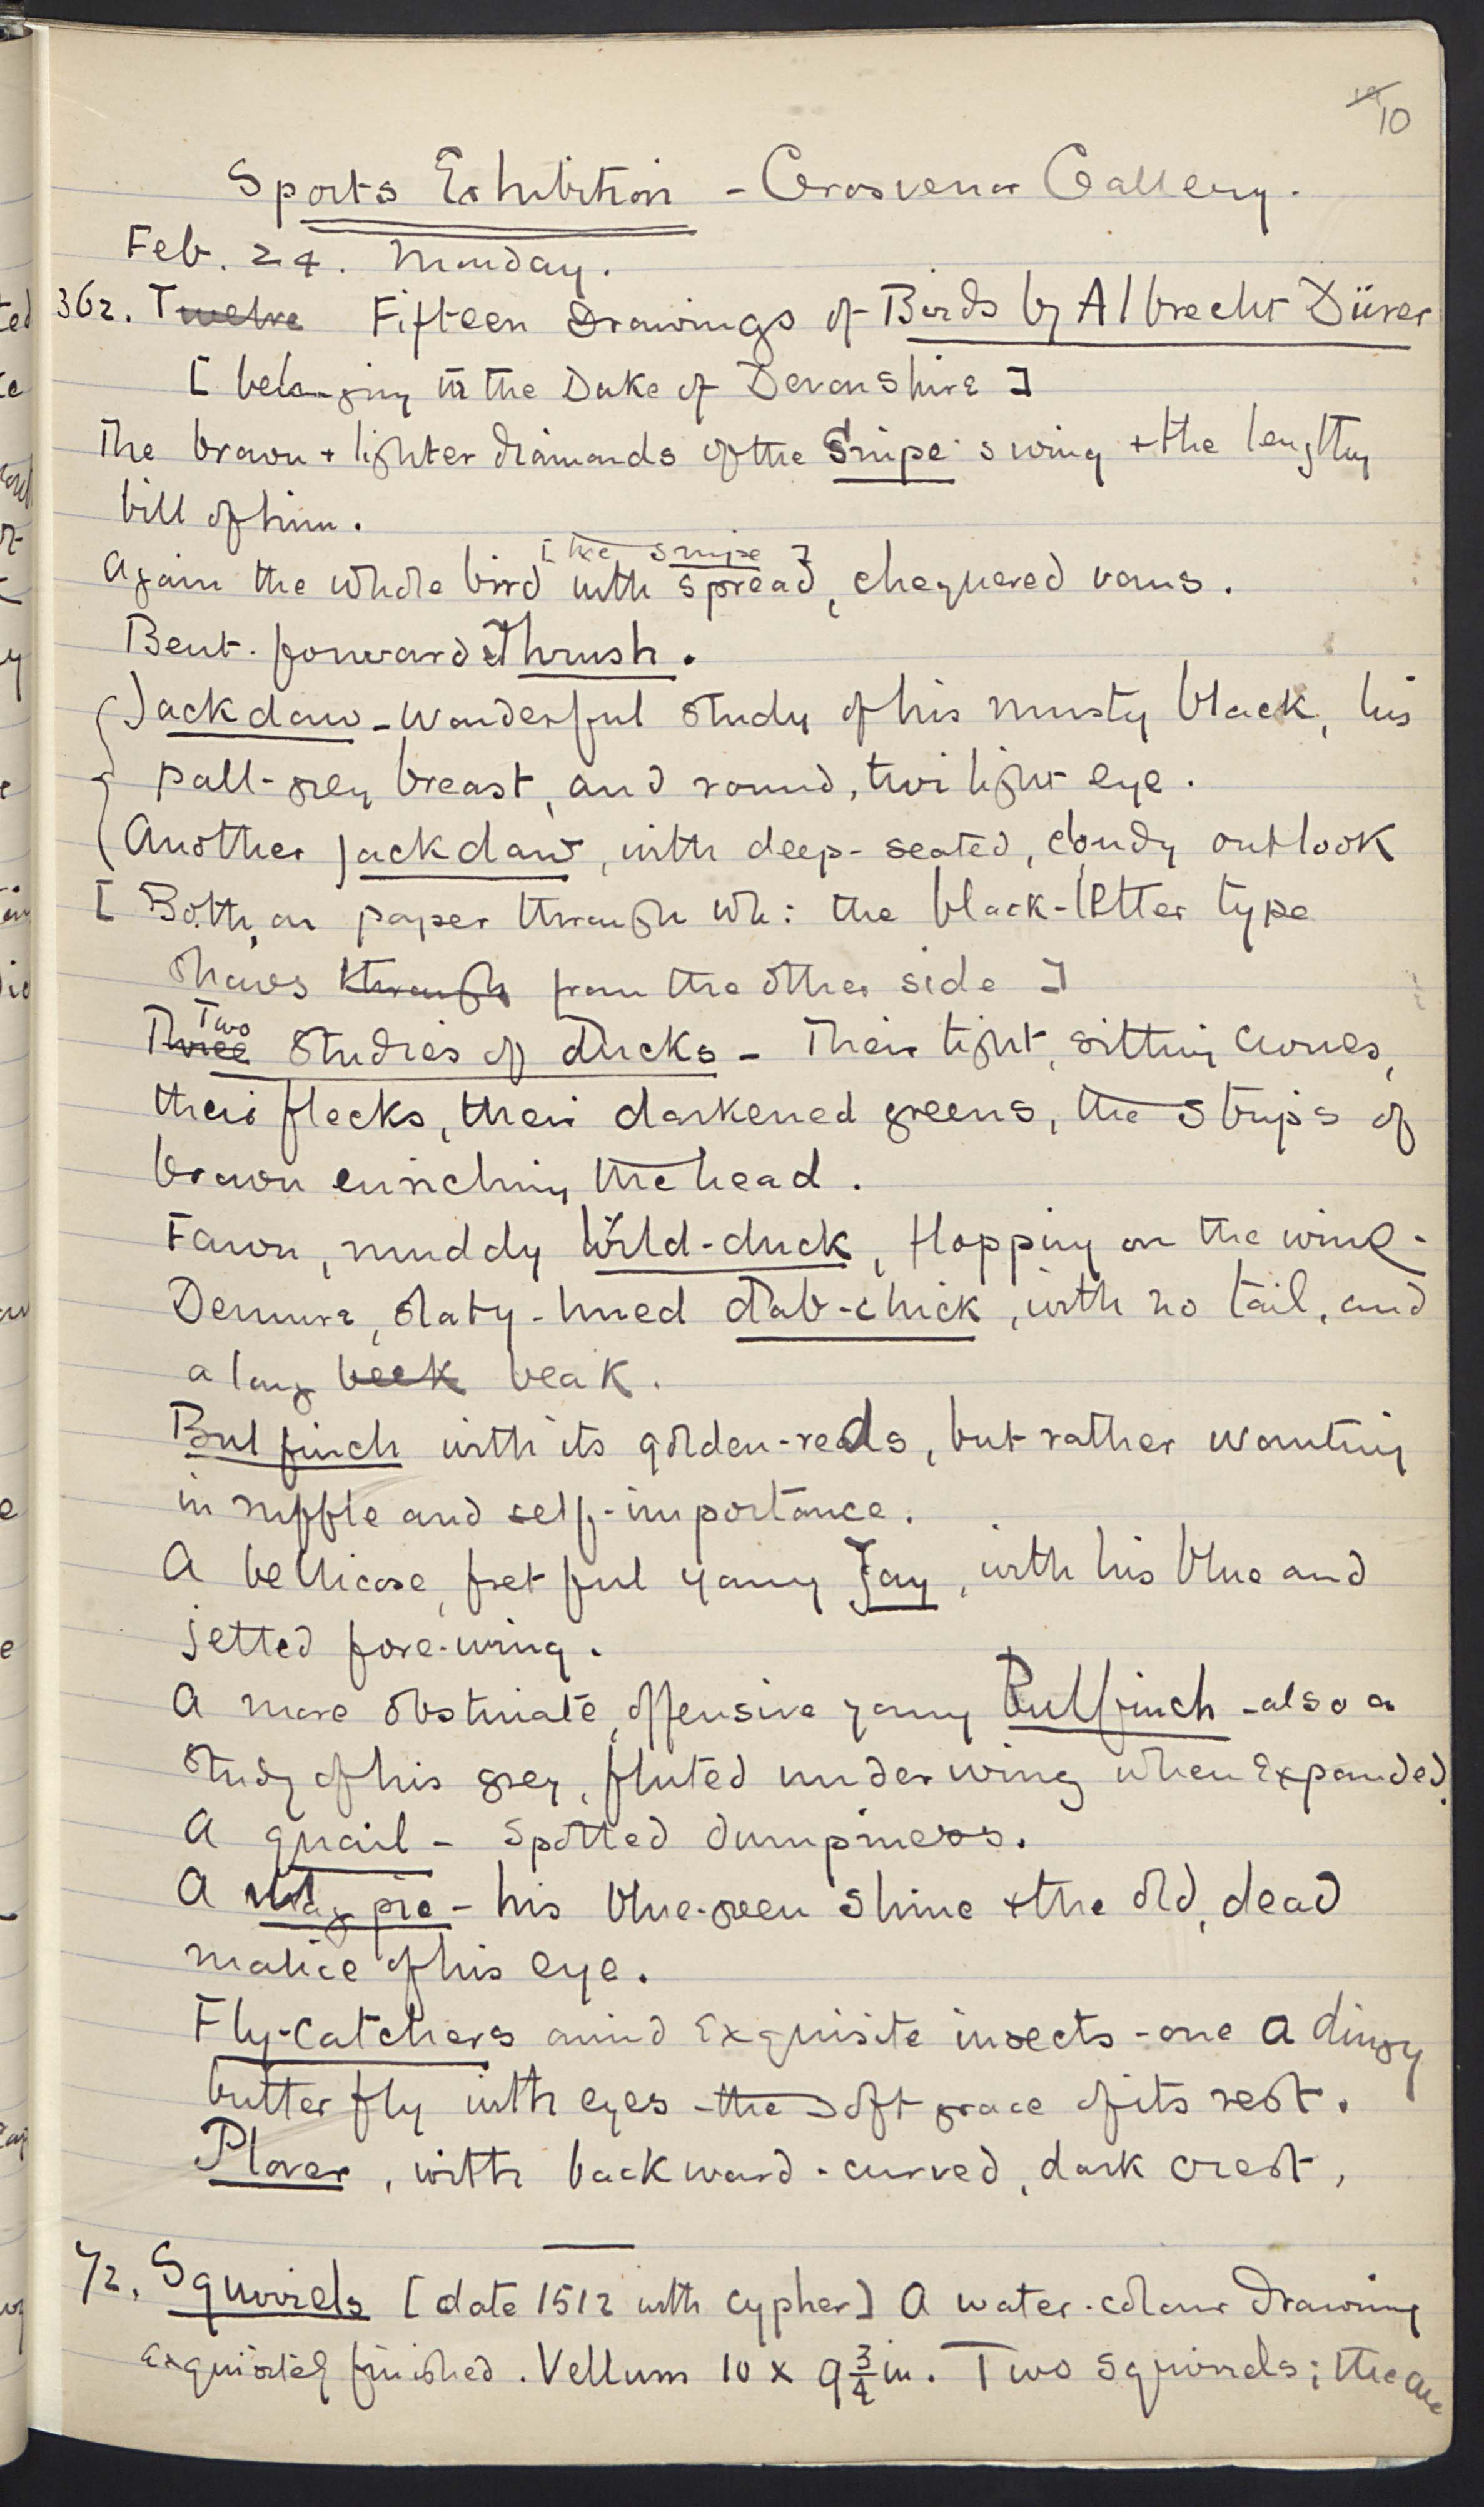 10
Sports Exhibition - Grosvenor Gallery.
Feb. 24. Monday.
362. Twelve Fifteen Drawings of Birds by Albrecht Dürer
[ belonging to the Duke of Devonshire ]
The brown + lighter diamonds of the Snipe's wing + the lengthy
bill of him.
[the snipe]
Again the whole bird with spread, chequered vans.
Bent-forward Thrush.
Jackdaw - wonderful study of his musty black, his
pall-grey breast, and round, twilight eye.
Another jackdaw, with deep-seated, cloudy outlook
[ Both, on paper through wh: the black-letter type
shows through from the other side ]
Two
Three studies of Ducks - Their tight, sitting
their flecks, their darkened greens, the strips of
brown enriching the head.
Fawn, muddy Wild-duck, flopping on the wing -
Demure, slaty-hued dab-chick, with no tail, and
a long beek beak.
Bulfinch with its golden-reds, but rather wanting
in ruffle and self-importance.
A bellicose, fretful young Jay, with his blue and
jetted fore-wing.
A more obstinate, offensive young Bullfinch - also a
study of his grey, fluted under wing when expanded.
A quail - spotted dumpiness.
A Magpie - his blue-green shine + the old, dead
malice of his eye.
Fly-catchers amid exquisite insects - one a dingy
butterfly with eyes - the soft grace of its rest.
Plover, with backward-curved, dark crest,
72. Squirrels [date 1512 with cypher] A water-colour drawing
exquisitely finished. Vellum 10 x 9 3/4 in. Two squirrels; the one